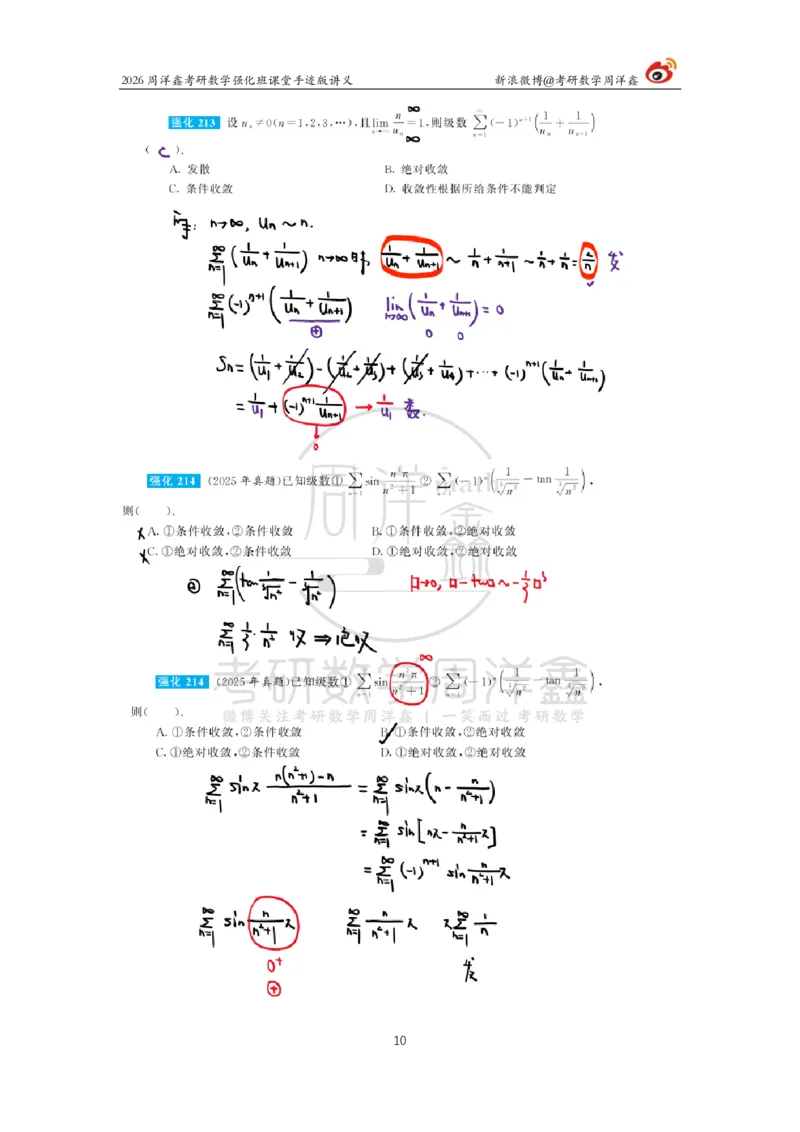 2026 周洋鑫考研数学强化班课堂手迹版讲义 新浪微博@考研数学周洋鑫
强化 213 设 uₙ≠0(n=1,2,3,…),且 lim_{n→∞} n/uₙ =1,则级数 ∑_{n=1}^{∞} (-1)^{n+1} (1/uₙ + 1/uₙ₊₁)
∞
∞
( C ).
A. 发散 B. 绝对收敛
C. 条件收敛 D. 收敛性根据所给条件不能判定
n→∞, uₙ ~ n.
∑_{n=1}^{∞} (1/uₙ + 1/uₙ₊₁) n→∞时, 1/uₙ + 1/uₙ₊₁ ~ 1/n + 1/n+1 ~ 1/n + 1/n = 2/n 发
∑_{n=1}^{∞} (-1)^{n+1} (1/uₙ + 1/uₙ₊₁) lim_{n→∞} (1/uₙ + 1/uₙ₊₁) = 0
⊕ 0 0
Sₙ = (1/u₁ + 1/u₂) - (1/u₂ + 1/u₃) + (1/u₃ + 1/u₄) + ··· + (-1)^{n+1} (1/uₙ + 1/uₙ₊₁)
= 1/u₁ + (-1)^{n+1} 1/uₙ₊₁ → 1/u₁ 数.
0
强化 214 (2025 年真题)已知级数① ∑_{n=1}^{∞} sin n³π/(n²+1) ② ∑_{n=1}^{∞} (-1)ⁿ (1/∛n² - tan 1/∛n²),
则( ).
A. ①条件收敛,②条件收敛 B. ①条件收敛,②绝对收敛
C. ①绝对收敛,②条件收敛 D. ①绝对收敛,②绝对收敛
② ∑_{n=1}^{∞} (tan 1/∛n² - 1/∛n²) □→0, □-tan□ ~ -1/3 □³
∑_{n=1}^{∞} 1/3 · 1/n² 收 ⇒ 绝收
∞
强化 214 (2025 年真题)已知级数① ∑_{n=1}^{∞} sin n³π/(n²+1) ② ∑_{n=1}^{∞} (-1)ⁿ (1/∛n² - tan 1/∛n²),
则( ).
考研数学周洋鑫
微博关注考研数学周洋鑫 | 一笑而过 考研数学
A. ①条件收敛,②条件收敛 B. ①条件收敛,②绝对收敛
C. ①绝对收敛,②条件收敛 D. ①绝对收敛,②绝对收敛
∑_{n=1}^{∞} sinπ n(n²+1)-n/(n²+1) = ∑_{n=1}^{∞} sinπ (n - n/(n²+1))
= ∑_{n=1}^{∞} sin[nπ - n/(n²+1) π]
= ∑_{n=1}^{∞} (-1)^{n+1} sin n/(n²+1) π
∑_{n=1}^{∞} sin n/(n²+1) π ∑_{n=1}^{∞} n/(n²+1) π π∑_{n=1}^{∞} 1/n
0⁺ 发
⊕
10